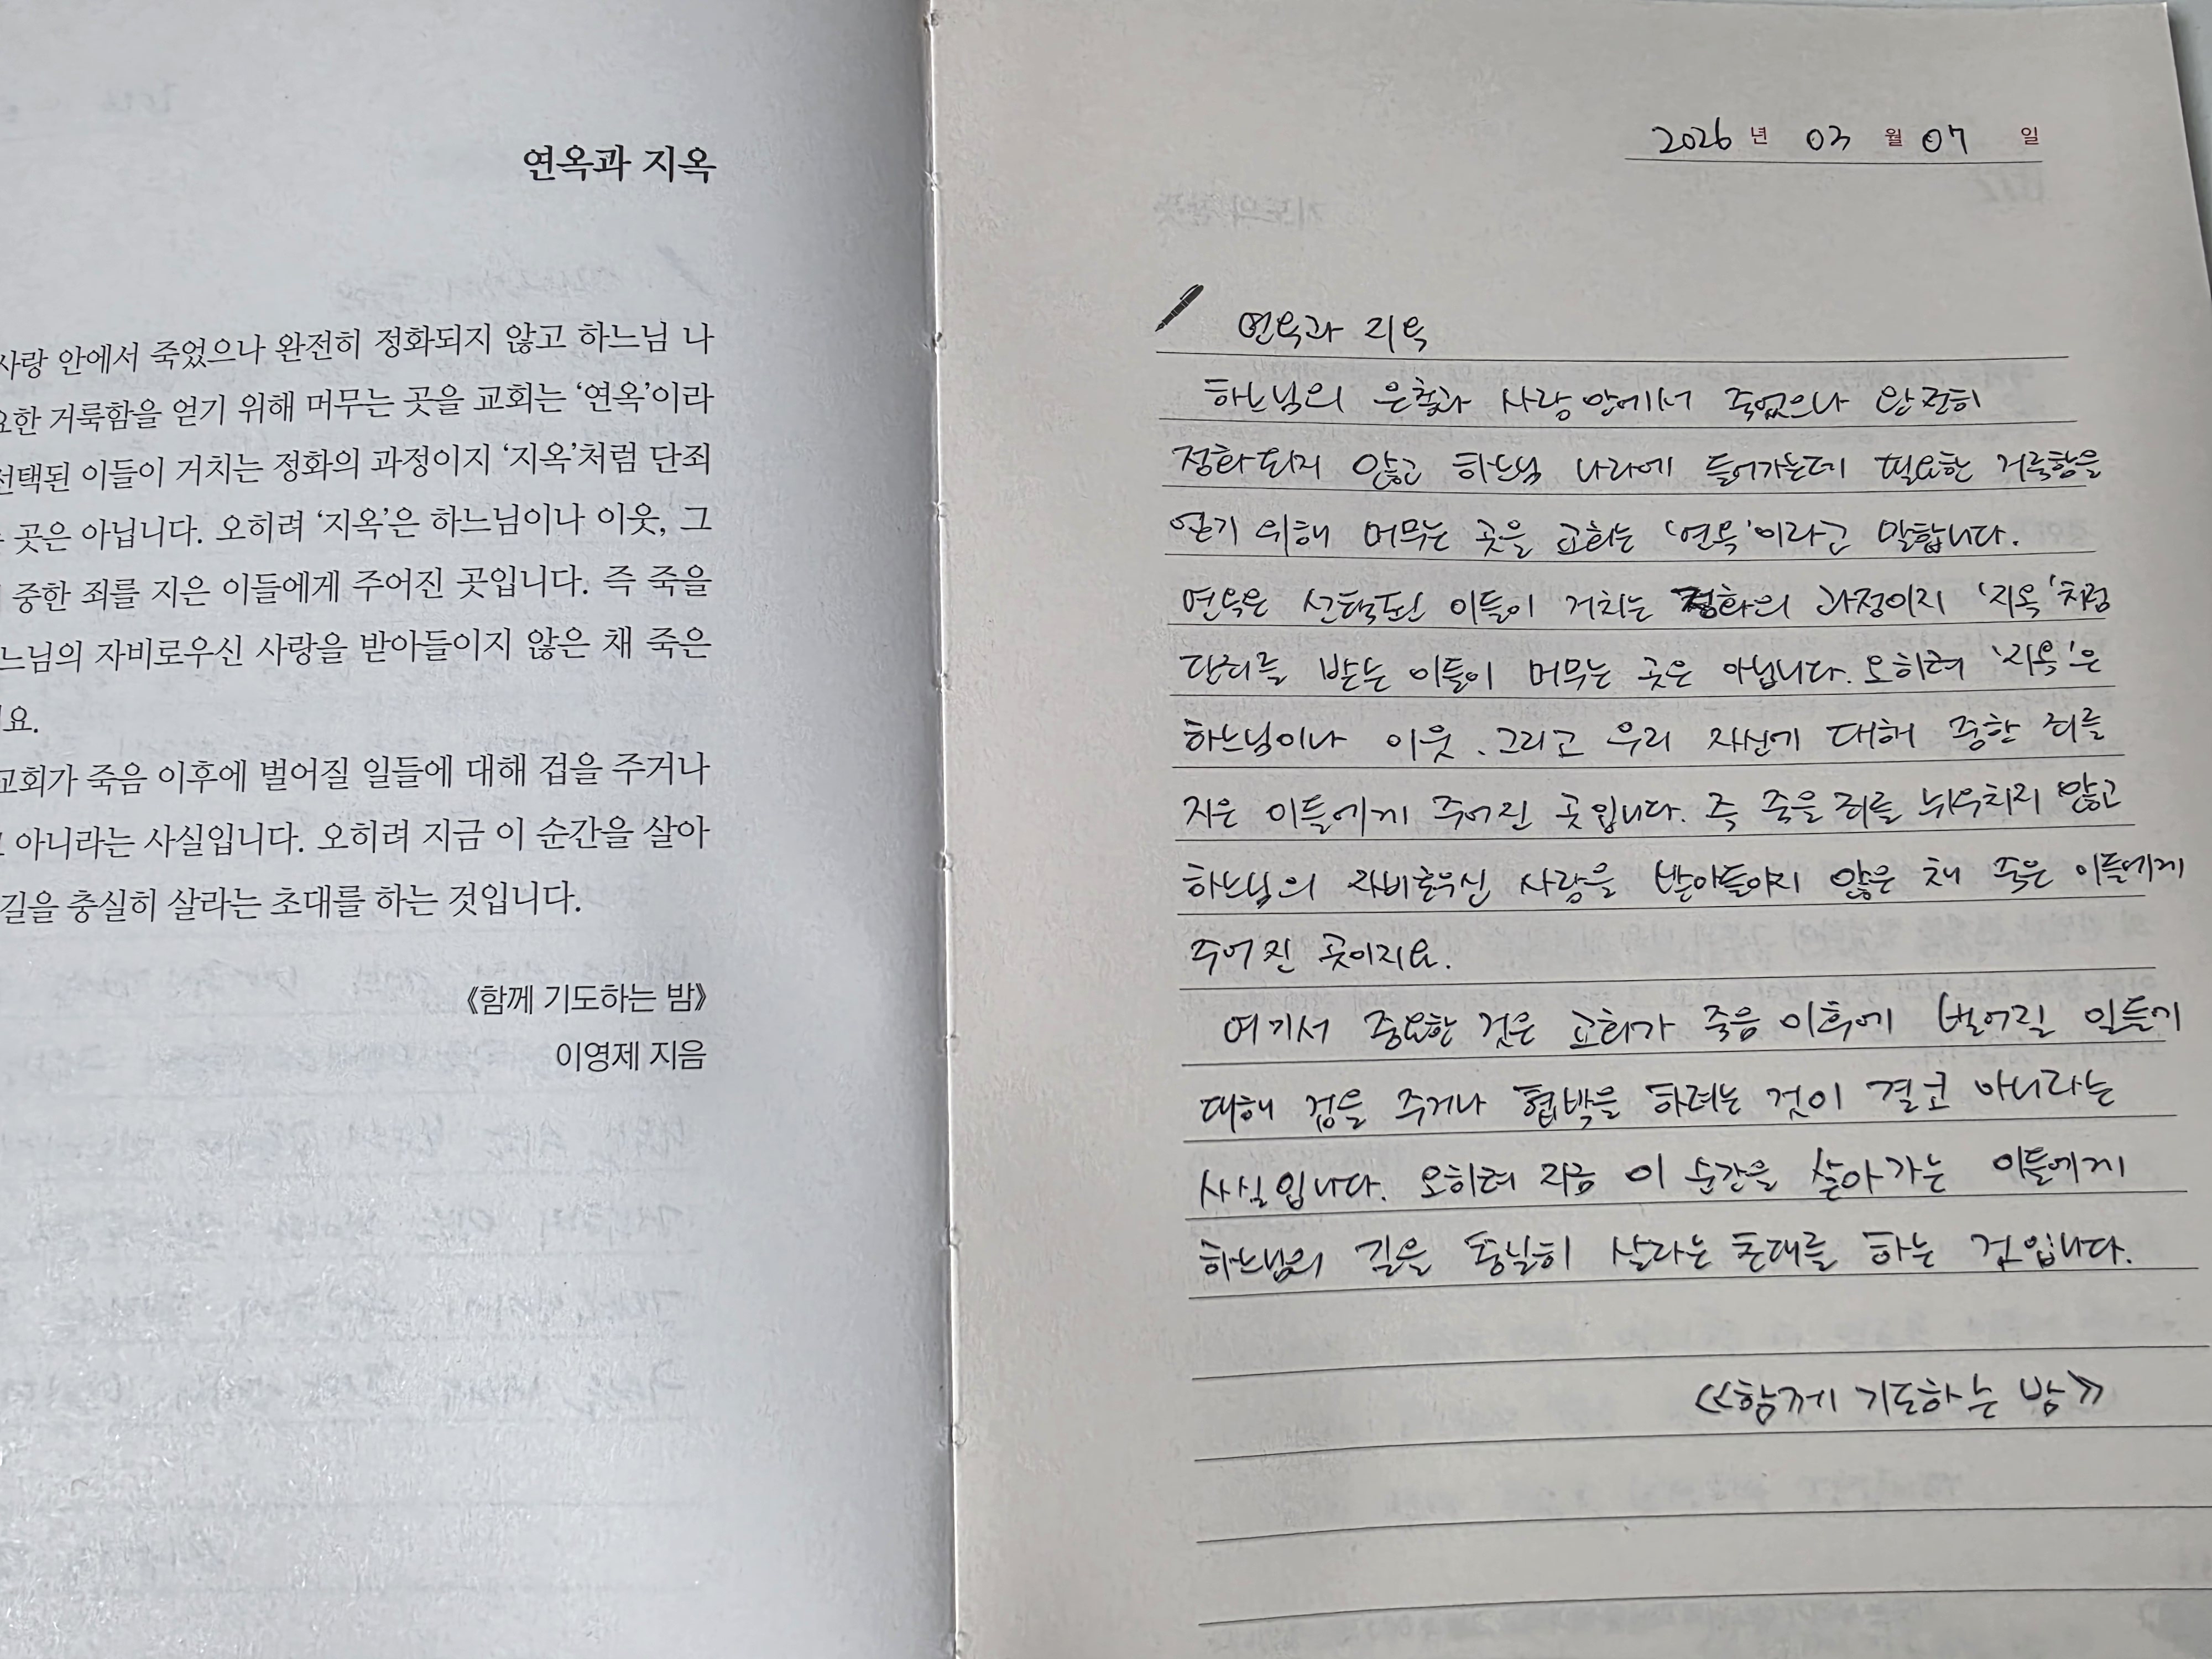 연옥과 지옥
사랑 안에서 죽었으나 완전히 정화되지 않고 하느님 나
요한 거룩함을 얻기 위해 머무는 곳을 교회는 ‘연옥’이라
선택된 이들이 거치는 정화의 과정이지 ‘지옥’처럼 단죄
곳은 아닙니다. 오히려 ‘지옥’은 하느님이나 이웃, 그
중한 죄를 지은 이들에게 주어진 곳입니다. 즉 죽을
느님의 자비로우신 사랑을 받아들이지 않은 채 죽은
요.
교회가 죽음 이후에 벌어질 일들에 대해 겁을 주거나
아니라는 사실입니다. 오히려 지금 이 순간을 살아
길을 충실히 살라는 초대를 하는 것입니다.
《함께 기도하는 밤》
이영제 지음
2026 년 03 월 07 일
연옥과 지옥
하느님의 은총과 사랑 안에서 죽었으나 완전히
정화되지 않고 하느님 나라에 들어가는데 필요한 거룩함을
얻기 위해 머무는 곳을 교회는 ‘연옥’이라고 말합니다.
연옥은 선택된 이들이 거치는 정화의 과정이지 ‘지옥’처럼
단죄를 받는 이들이 머무는 곳은 아닙니다. 오히려 ‘지옥’은
하느님이나 이웃, 그리고 우리 자신에 대해 중한 죄를
지은 이들에게 주어진 곳입니다. 즉 죽을 죄를 뉘우치지 않고
하느님의 자비로우신 사랑을 받아들이지 않은 채 죽은 이들에게
주어진 곳이지요.
여기서 중요한 것은 교회가 죽음 이후에 벌어질 일들에
대해 겁을 주거나 협박을 하려는 것이 결코 아니라는
사실입니다. 오히려 지금 이 순간을 살아가는 이들에게
하느님의 길을 충실히 살라는 초대를 하는 것입니다.
《함께 기도하는 밤》